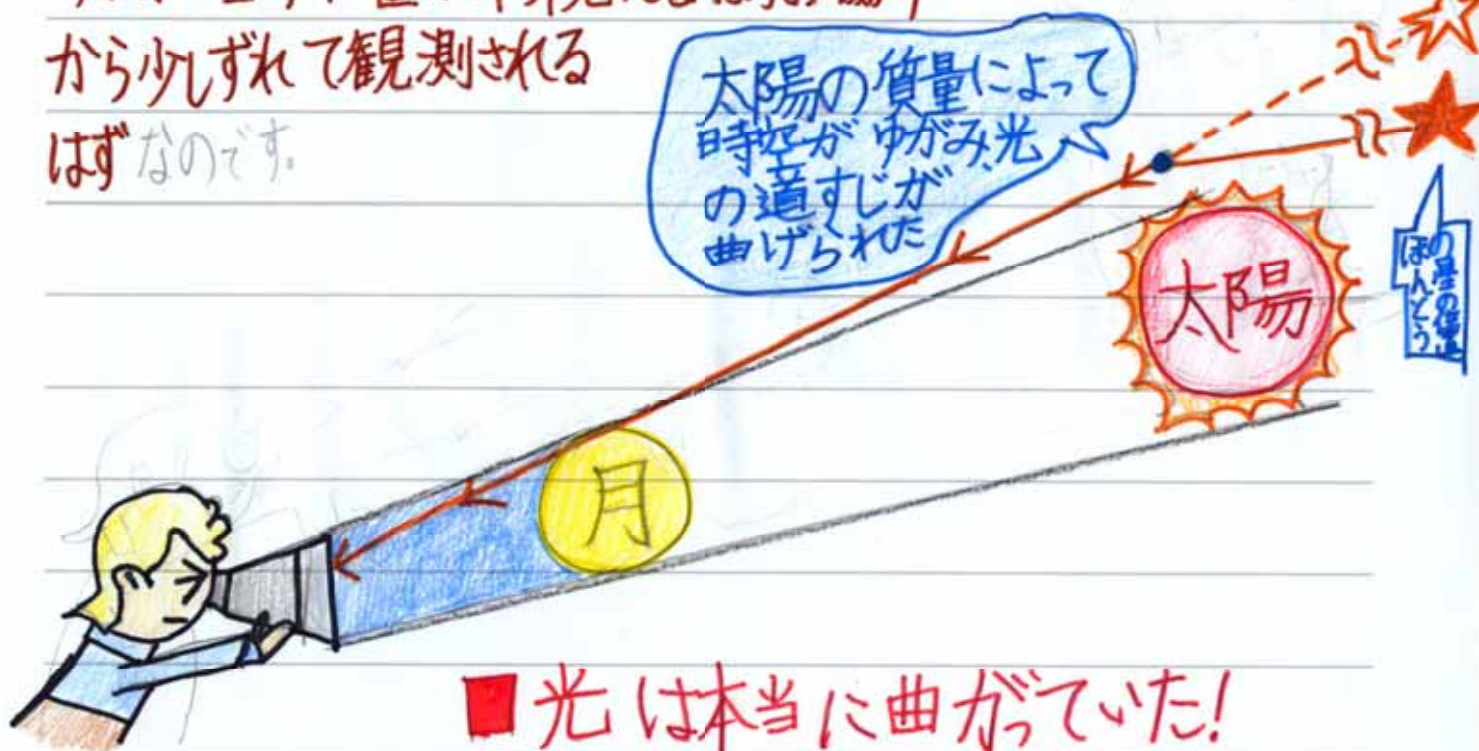 から少しずれて観測される
はずなのです。
太陽の質量によって
時空がゆがみ、光
の道すじが
曲げられた
太陽
ほんとう
の星の位置
月
■光は本当に曲がっていた!